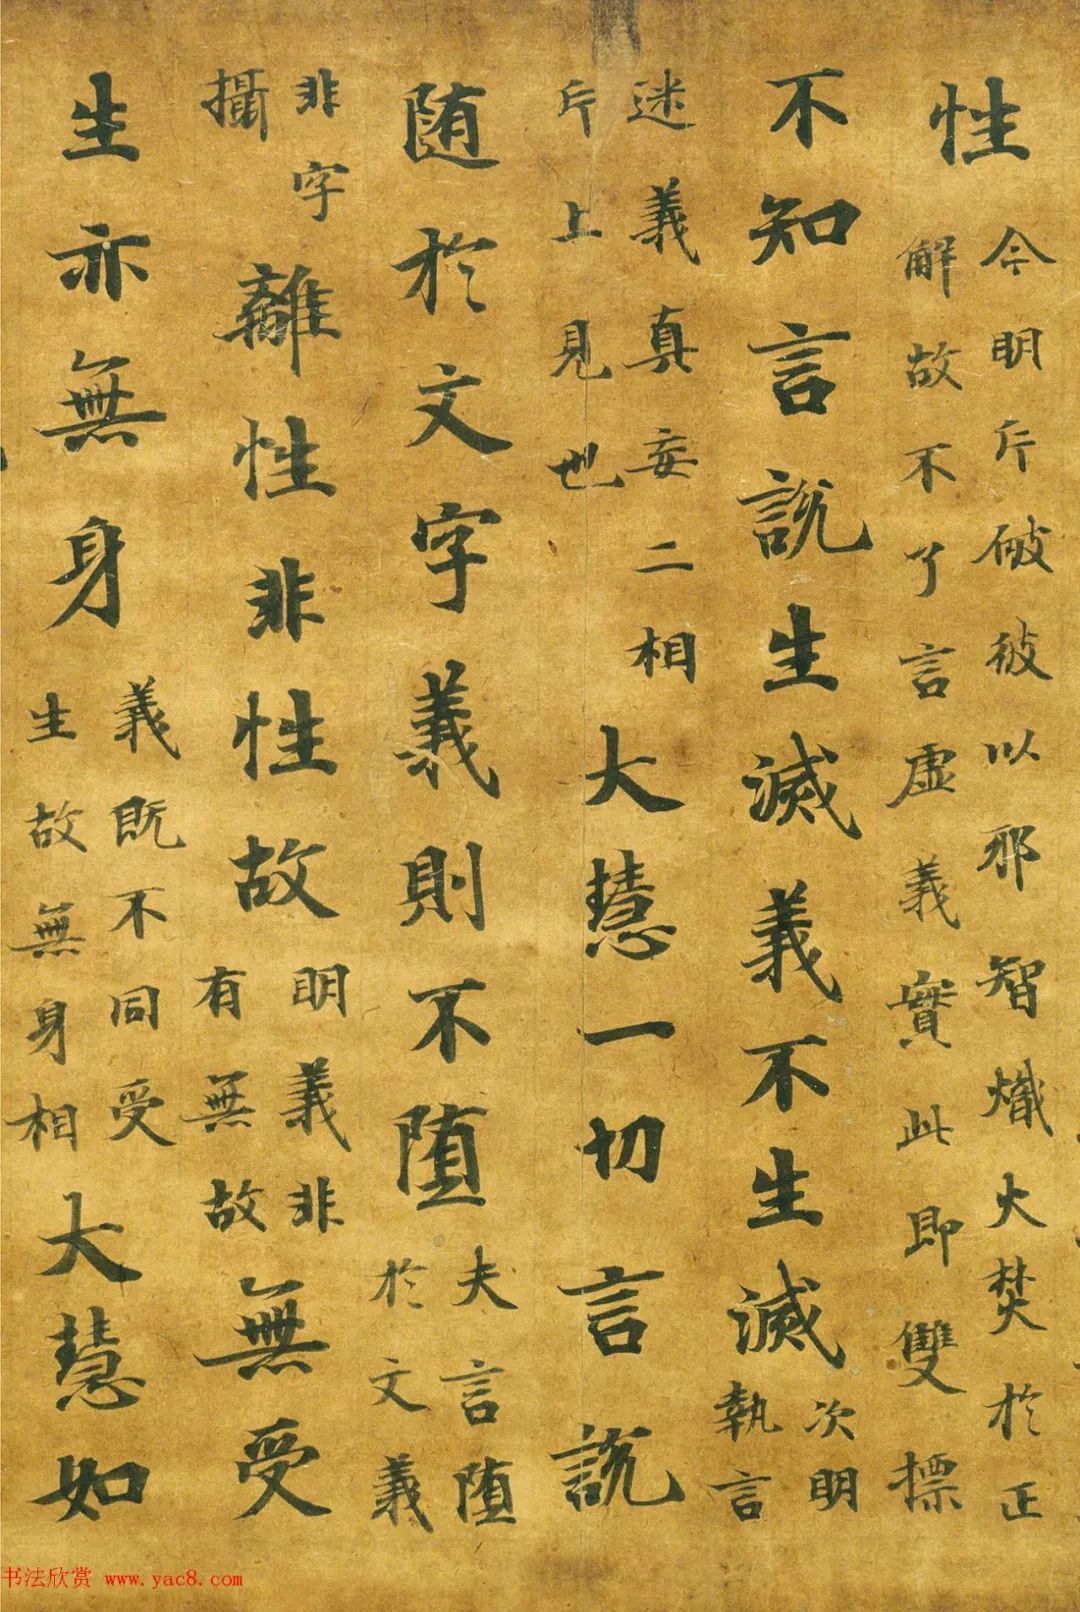 性
今明斥破彼以邪智熾火焚於正
解故不了言虛義實此即雙標
不知言說生滅義不生滅
次明
執言
迷義真妄二相
斥上見也
大慧一切言說
随於文字義則不堕
夫言堕
於文義
非字
攝
離性非性故
明義非
有無故
無受
生亦無身
義既不同受
生故無身相
大慧如
书法欣赏 www.yac8.com